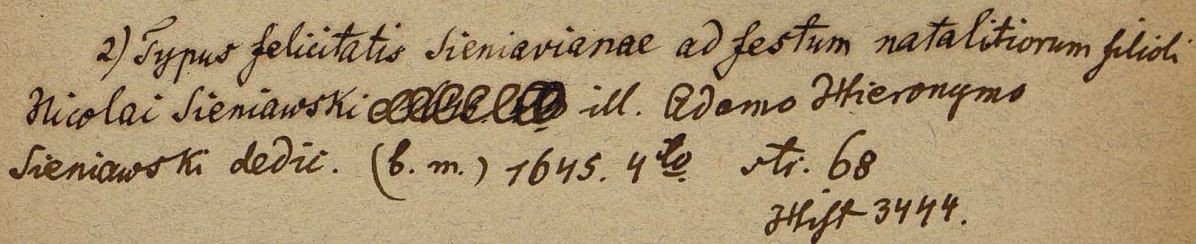 2) Typus felicitatis Sieniavianae ad festum natalitiorum filioli
Nicolai Sieniawski ill. Adamo Hieronymo
Sieniawski dedic. (b. m.) 1645. 4to str. 68
Hist 3444.